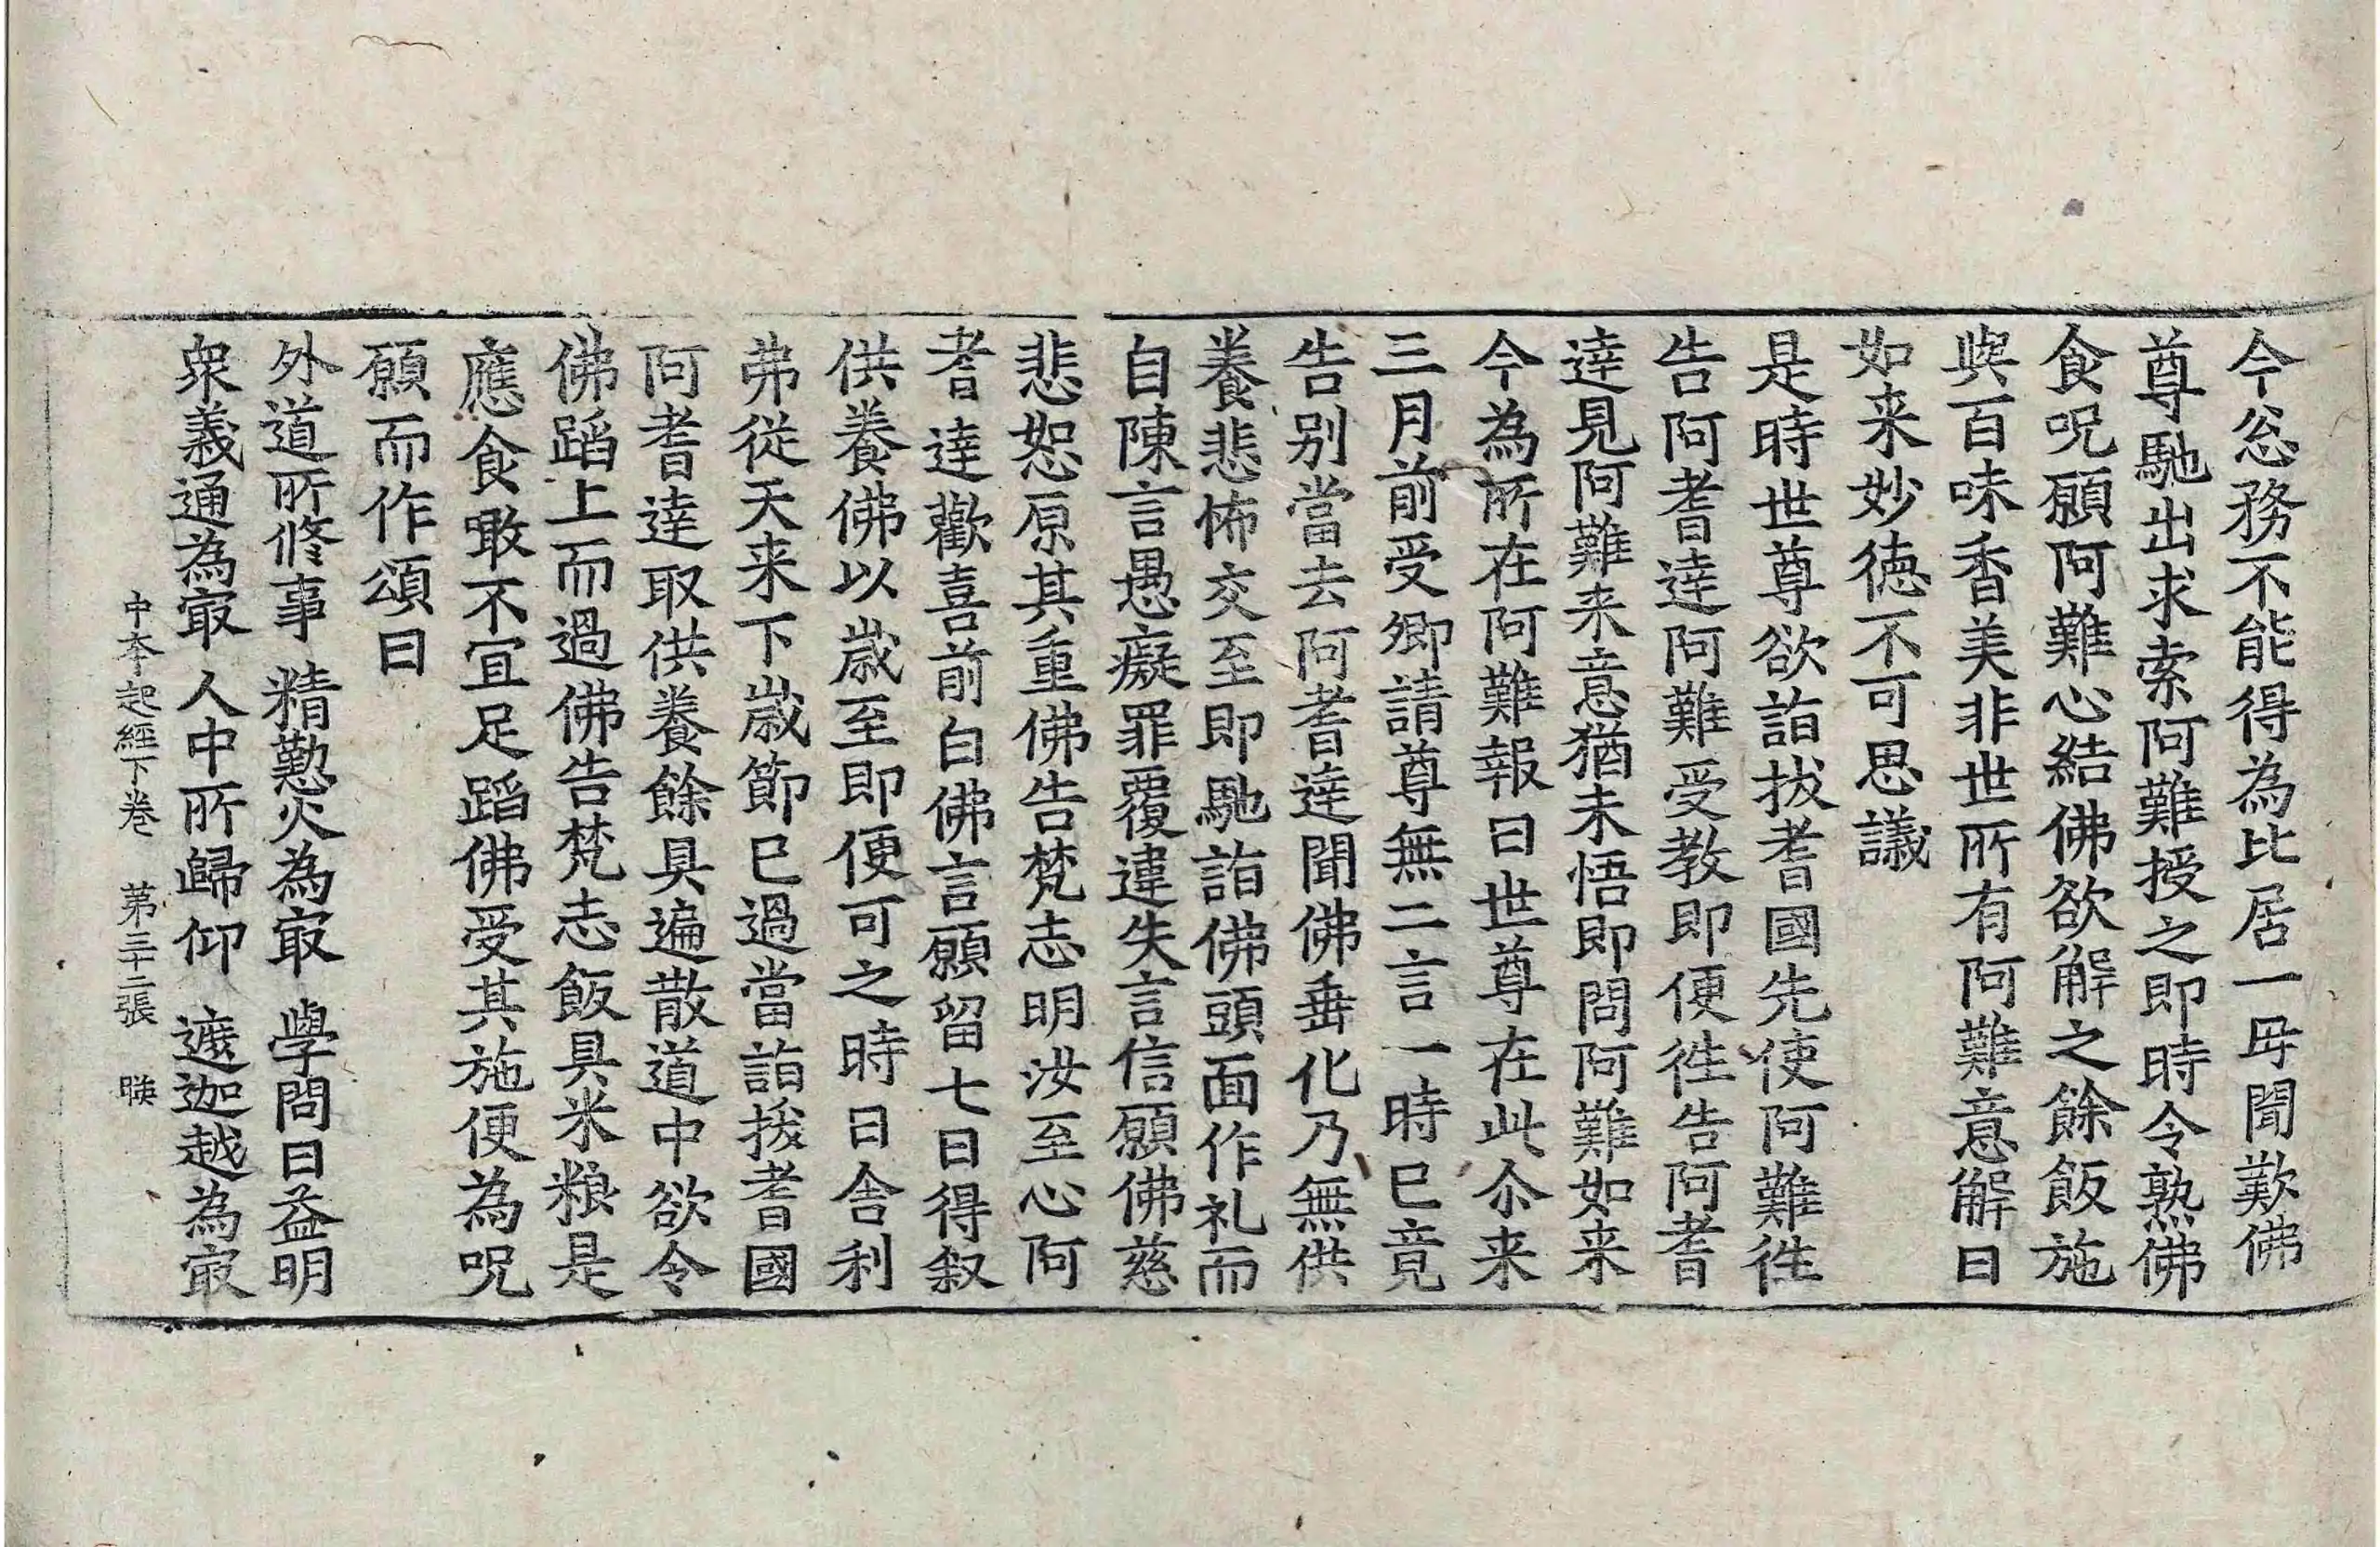 今忩務不能得為比居一母聞歎佛
尊馳出求索阿難授之即時令熟佛
食呪願阿難心結佛欲解之餘飯施
與百味香美非世所有阿難意解曰
如来妙德不可思議
是時世尊欲詣拔耆國先使阿難徃
告阿耆達阿難受教即便徃告阿耆
達見阿難来意猶未悟即問阿難如来
今為所在阿難報曰世尊在此尒来
三月前受卿請尊無二言一時已竟
告别當去阿耆達聞佛垂化乃無供
養悲怖交至即馳詣佛頭面作礼而
自陳言愚癡罪覆違失言信願佛慈
悲恕原其重佛告梵志明汝至心阿
耆達歡喜前白佛言願留七日得叙
供養佛以歲至即便可之時日舎利
弗從天来下歲節已過當詣拔耆國
阿耆達取供養餘具遍散道中欲令
佛蹈上而過佛告梵志飯具米粮是
應食噉不宜足蹈佛受其施便為呪
願而作頌曰
外道所修事 精懃火為㝡 學問日益明
衆義通為㝡 人中所歸仰 遮迦越為㝡
中夲起經下卷 第三十二張 映